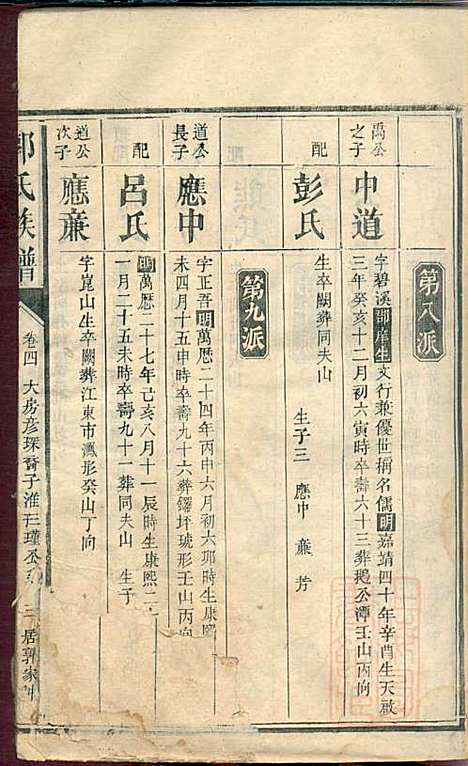 第八派
禹公之子
中道
字碧溪郡庠生文行兼優世稱名儒明嘉靖四十年辛酉生天啟
三年癸亥十二月初六寅時卒壽六十三葬鵝公潭壬山丙向
配
彭氏
生卒闕葬同夫山
生子三 應中 亷 芳
第九派
道公長子
應中
字正吾明萬歷二十四年丙申六月初六邜時生康熙
未四月十五申時卒壽九十六葬鑼坪琥形壬山丙向
配
呂氏
明萬歷二十七年己亥八月十一辰時生康熙二
一月二十五未時卒壽九十一葬同夫山 生子
道公次子
應亷
字崑山生卒闕葬江東市瓢形癸山丁向
氏族譜
卷四 大房彥琛裔子淮三瑾公 三 居郭家